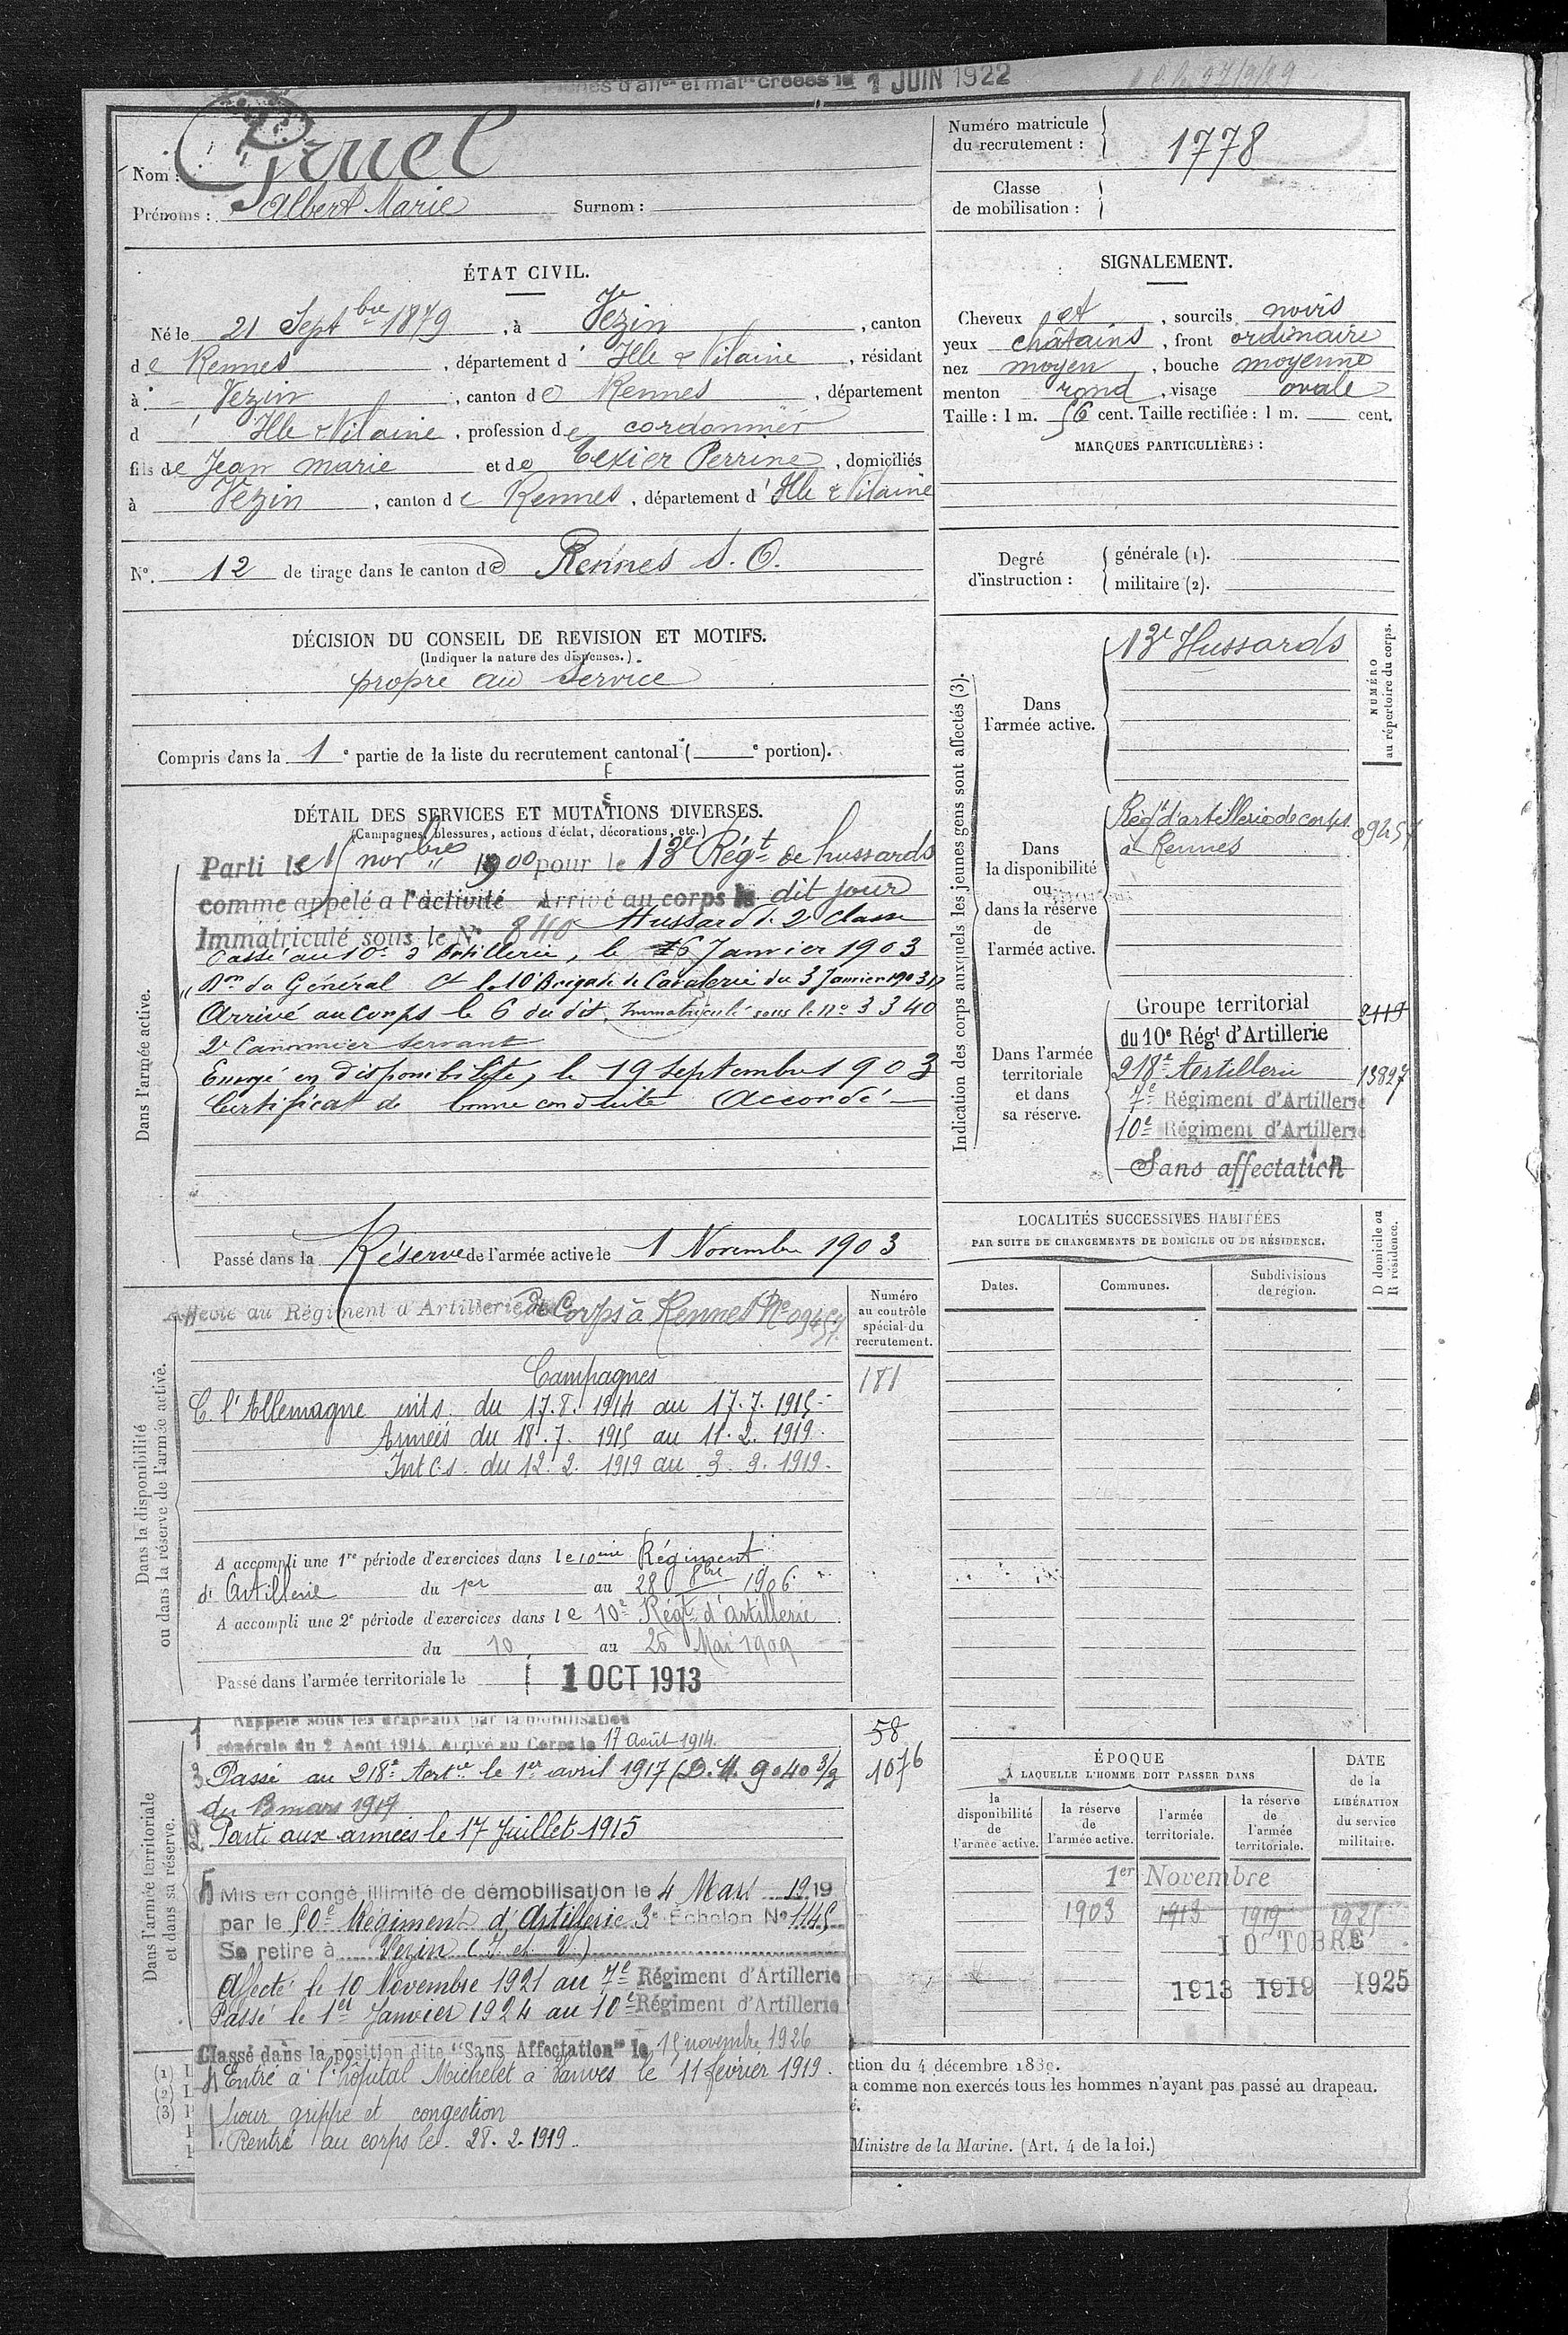 1 JUIN 1922
Nom : Gruel
Prénoms : Albert Marie Surnom :
Numéro matricule du recrutement : 1778
Classe de mobilisation :
ÉTAT CIVIL.
Né le 21 Septbre 1879, à Vezin, canton
de Rennes, département d' Ille & Vilaine, résidant
à Vezin, canton de Rennes, département
d' Ille & Vilaine, profession de cordonnier
fils de Jean marie et de Texier Perrine, domiciliés
à Vezin, canton de Rennes, département d' Ille & Vilaine
N°. 12 de tirage dans le canton de Rennes S. O.
SIGNALEMENT.
Cheveux et, sourcils noirs
yeux châtains, front ordinaire
nez moyen, bouche moyenne
menton rond, visage ovale
Taille : 1 m. 56 cent. Taille rectifiée : 1 m. cent.
MARQUES PARTICULIÈRES :
Degré d'instruction :
générale (1).
militaire (2).
DÉCISION DU CONSEIL DE REVISION ET MOTIFS.
(Indiquer la nature des dispenses.)
propre au service
Compris dans la 1e partie de la liste du recrutement cantonal ( e portion).
DÉTAIL DES SERVICES ET MUTATIONS DIVERSES.
(Campagnes, blessures, actions d'éclat, décorations, etc.)
Dans l'armée active.
Parti le 15 novbre 1900 pour le 13e Régt de hussards
comme appelé a l'activité Arrivé au corps le dit jour
Immatriculé sous le N° 840 Hussard de 2e classe
Passé au 10e d'Artillerie, le 6 Janvier 1903
Don du Général Ct la 10e Brigade de Cavalerie du 3 Janvier 1903
Arrivé au corps le 6 du dit, Immatriculé sous le no 3340
2e Canonnier servant
Envoyé en disponibilité, le 19 septembre 1903
Certificat de bonne conduite Accordé
Passé dans la Réserve de l'armée active le 1 Novembre 1903
Indication des corps auxquels les jeunes gens sont affectés (3).
NUMÉRO au répertoire du corps.
Dans l'armée active.
13e Hussards
Dans la disponibilité ou dans la réserve de l'armée active.
Régt d'artillerie de corps
à Rennes
09457
Dans l'armée territoriale et dans sa réserve.
Groupe territorial 2119
du 10e Régt d'Artillerie
218e Artillerie 13827
7e Régiment d'Artillerie
10e Régiment d'Artillerie
Sans affectation
LOCALITÉS SUCCESSIVES HABITÉES
PAR SUITE DE CHANGEMENTS DE DOMICILE OU DE RÉSIDENCE.
Dates. Communes. Subdivisions de région. D domicile ou R résidence.
Dans la disponibilité ou dans la réserve de l'armée active.
Numéro au contrôle spécial du recrutement.
Affecté au Régiment d'Artillerie de Corps à Rennes No 09457
181
Campagnes
C. l'Allemagne int.s. du 17.8.1914 au 17.7.1915
Armées du 18.7.1915 au 11.2.1919.
Int c.s. du 12.2.1919 au 3.3.1919.
A accompli une 1re période d'exercices dans le 10eme Régiment
d'Artillerie du 1er au 28 8bre 1906
A accompli une 2e période d'exercices dans le 10e Régt d'artillerie
du 10 au 26 Mai 1909
Passé dans l'armée territoriale le 1 OCT 1913
Dans l'armée territoriale et dans sa réserve.
1 Rappelé sous les drapeaux par la mobilisation
générale du 2 Août 1914. Arrivé au Corps le 17 août 1914.
58
1076
3 Passé au 218e Artie le 1er avril 1917 (D.M. 9040 3/3
du 13 mars 1917
2 Parti aux armées le 17 Juillet 1915
5 Mis en congé illimité de démobilisation le 4 Mars 1919
par le 50e Régiment d'Artillerie 3e Échelon N° 1145
Se retire à Vezin (I. et V.)
Affecté le 10 Novembre 1921 au 7e Régiment d'Artillerie
Passé le 1er Janvier 1924 au 10e Régiment d'Artillerie
Classé dans la position dite "Sans Affectation" le 15 novembre 1926
4 Entré à l'hôpital Michelet à Vanves le 11 février 1919.
pour grippe et congestion
Rentré au corps le 28.2.1919.
ÉPOQUE
À LAQUELLE L'HOMME DOIT PASSER DANS
la disponibilité de l'armée active.
la réserve de l'armée active.
l'armée territoriale.
la réserve de l'armée territoriale.
DATE de la LIBÉRATION du service militaire.
1er Novembre
1903 1913 1919 1925
1 OCTOBRE
1913 1919 1925
(1) I
(2) I
(3) I
ction du 4 décembre 1889.
a comme non exercés tous les hommes n'ayant pas passé au drapeau.
é.
Ministre de la Marine. (Art. 4 de la loi.)